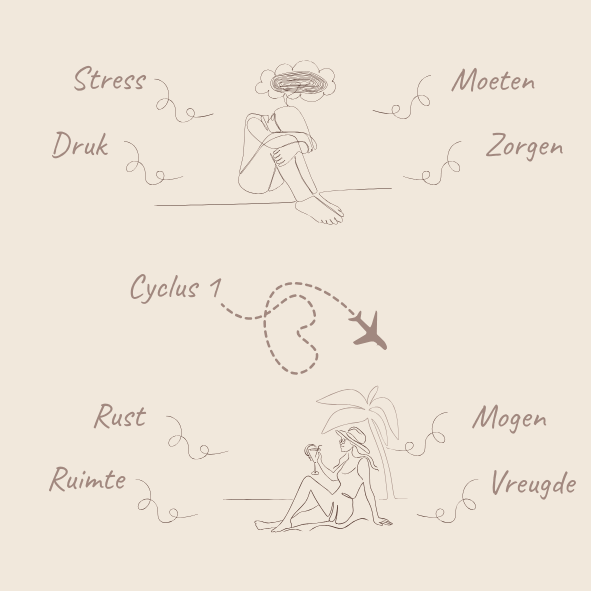 Stress
Moeten
Druk
Zorgen
Cyclus 1
Rust
Mogen
Ruimte
Vreugde